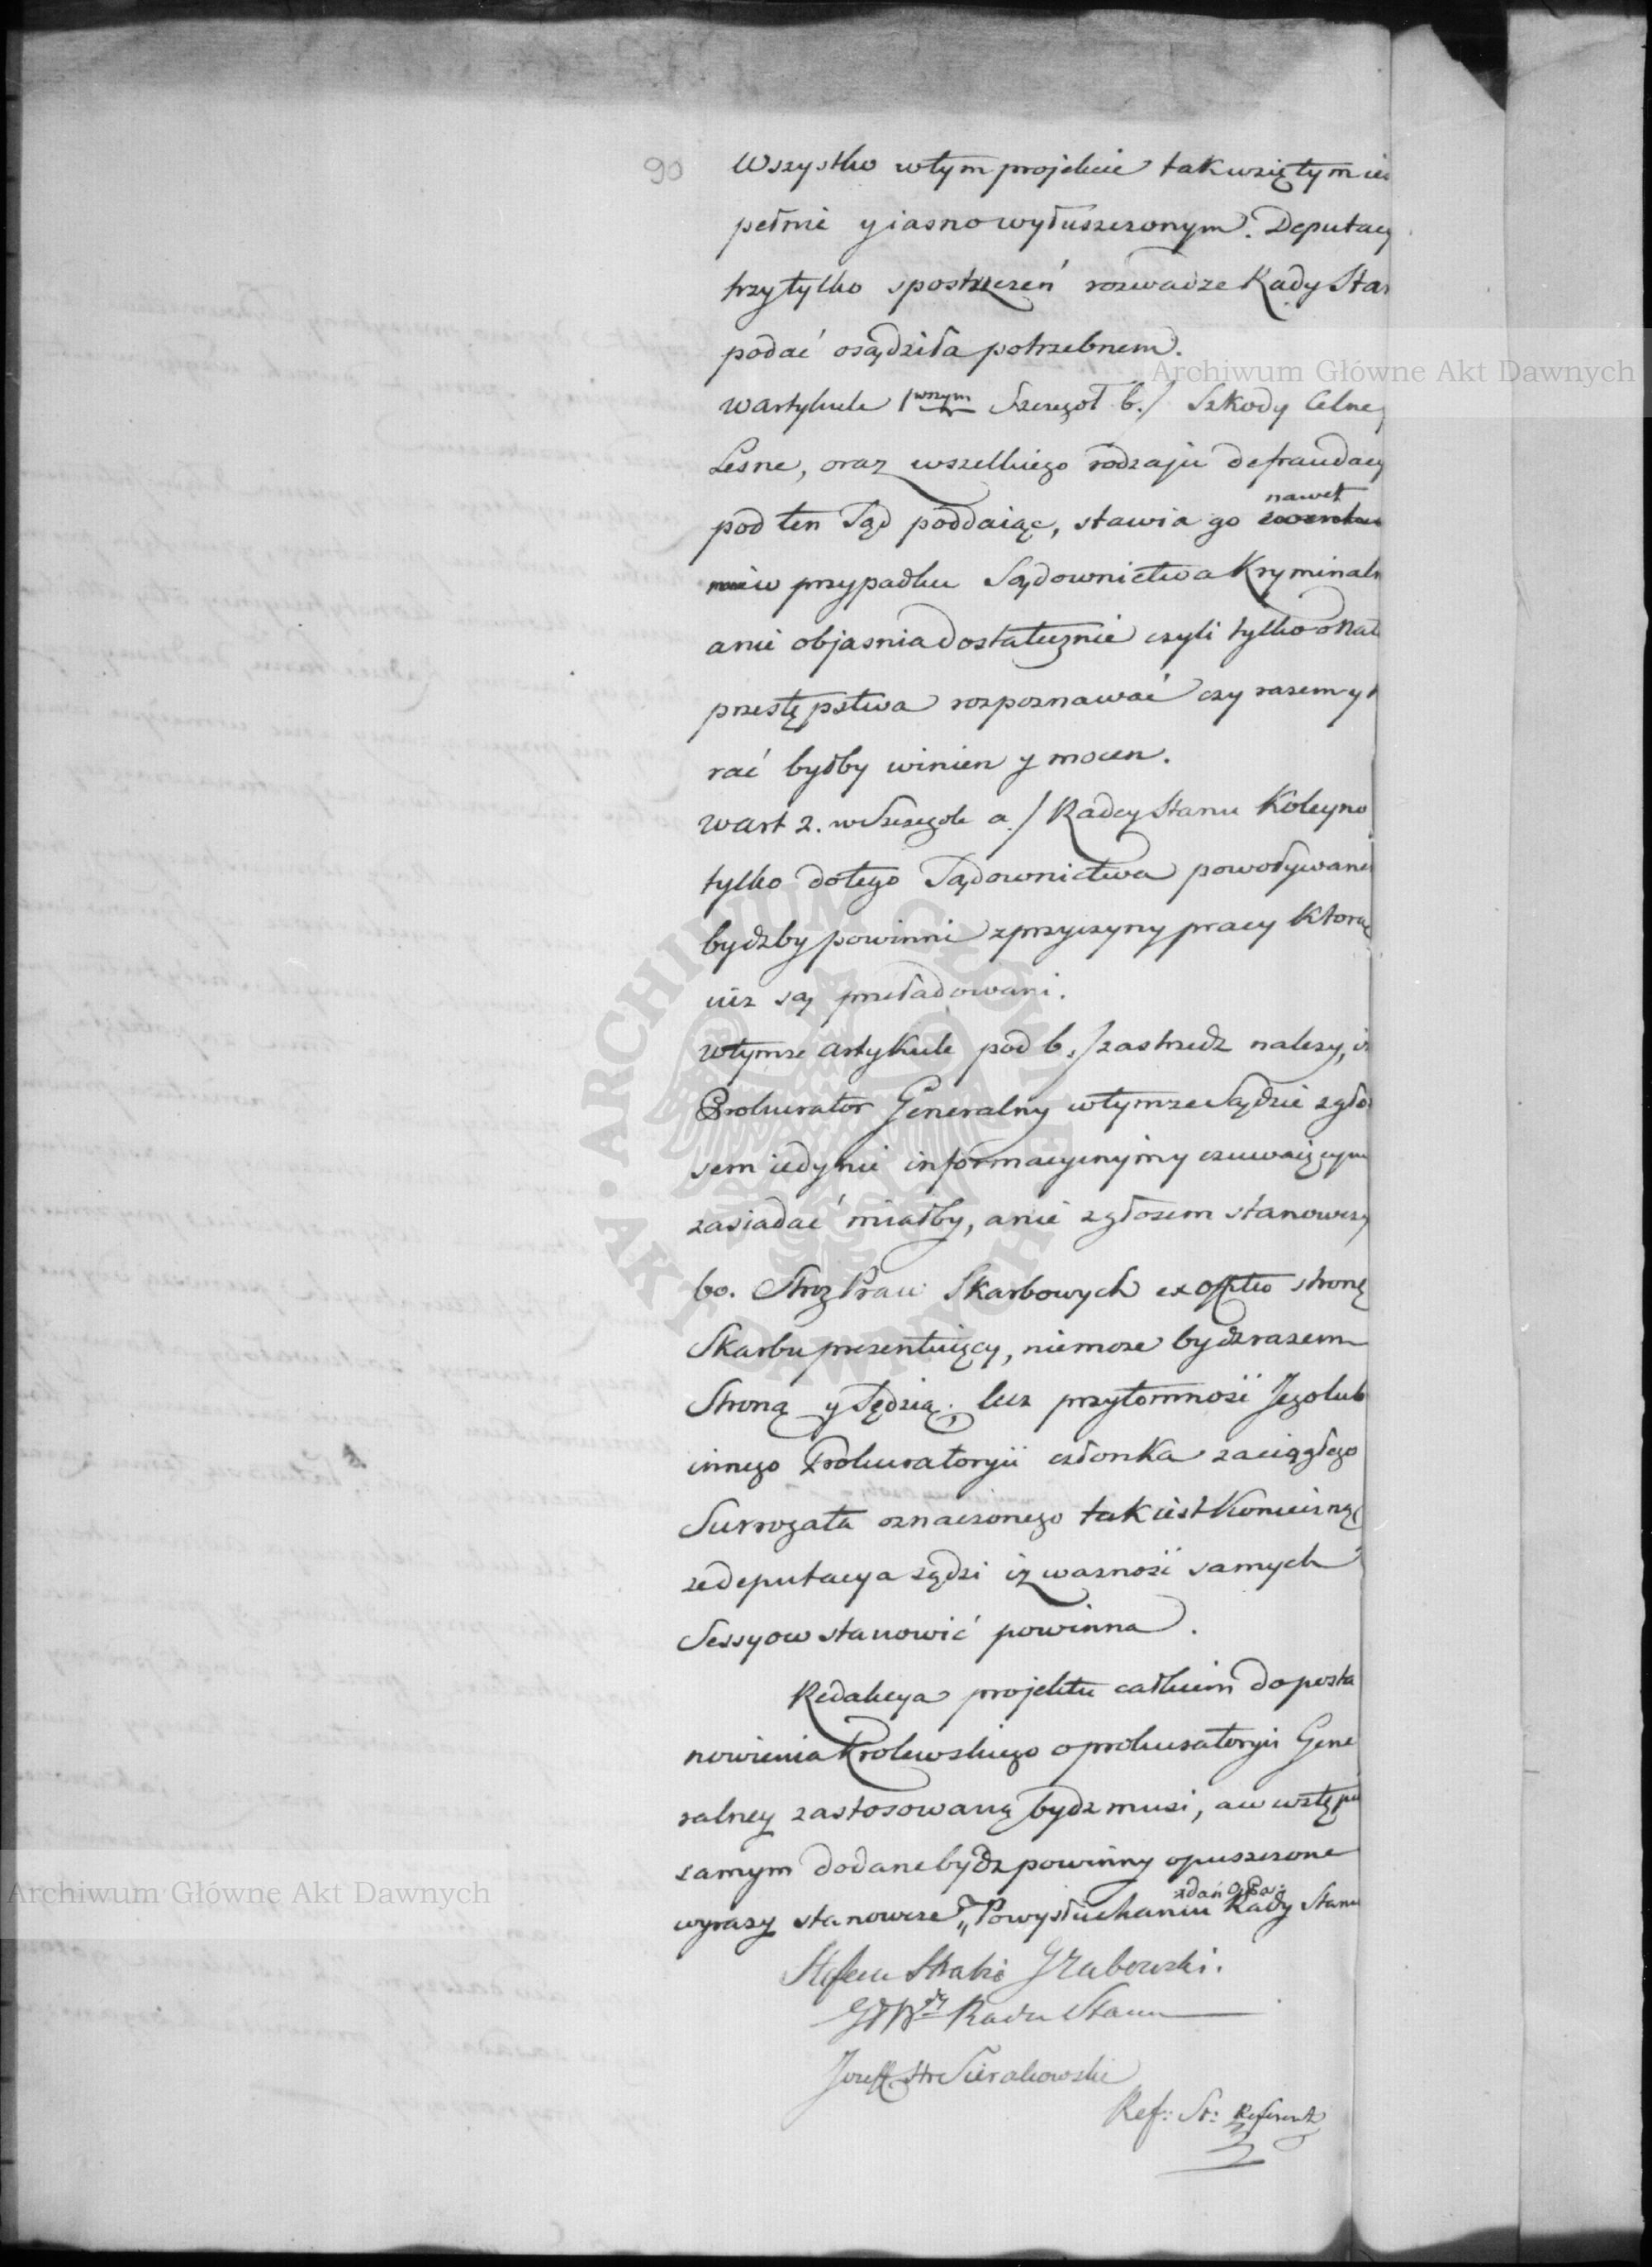 90
Wszystko wtym projekcie tak wziętym ies
pełnie y iasno wyłuszczonym. Deputacy
trzy tylko spostrzeżeń rozwadze Rady Sta
podać osądziła potrzebnem.
W artykule 1wszym Szczegół b./ Szkody Celne
Leśne, oraz wszelkiego rodzaju defraudacy
nawet
pod ten Sąd poddaiąc, stawia go
w przypadku Sądownictwa Kryminaln
a nie objasnia dostatecznie czyli tylko o
przestępstwa rozpoznawać czy razem y
rać byłby winien y mocen.
W art 2. w Szczegole a./ Radcy Stanu Koleyno
tylko do tego Sądownictwa powoływane
bydźby powinni z przyczyny pracy ktorą
iuż są przeładowani.
W tymże Artykule pod b./ zastrzedz nalezy, iż
Prokurator Generalny w tymże Sądzie z gło
sem iedynie informacyinym y czuwaiącym
zasiadać miałby, a nie z głosem stanowczy
bo. Stroz Praw Skarbowych ex officio stronę
Skarbu prezentuiący, nie może bydz razem
Stroną y Sędzią; lecz przytomność Jego lub
innego Prokuratoryi członka za ciągłego
Surrogata oznaczonego tak iest konieczną
że deputacya sądzi iż ważność samych
Sessyow stanowić powinna.
Redakcya projektu całkiem do posta
nowienia Krolewskiego o prokuratoryi Gene
ralney zastosowaną bydz musi, a w wstępie
samym dodane bydz powinny opuszczone
zdań
wyrazy stanowcze „Po wysłuchaniu Rady Stanu
Stefan Hrabia Grabowski.
Radca Stanu
Jozeff Hr Sierakowski
Ref: St: Referent
Archiwum Główne Akt Dawnych
Archiwum Główne Akt Dawnych
ARCHIWUM GŁÓWNE AKT DAWNYCH